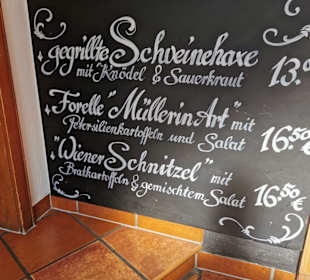 gegrillte Schweinehaxe
mit Knödel & Sauerkraut 13.
Forelle "Müllerin Art" mit
Petersilienkartoffeln und Salat 16.50 €
"Wiener Schnitzel" mit
Bratkartoffeln & gemischtem Salat 16.50 €